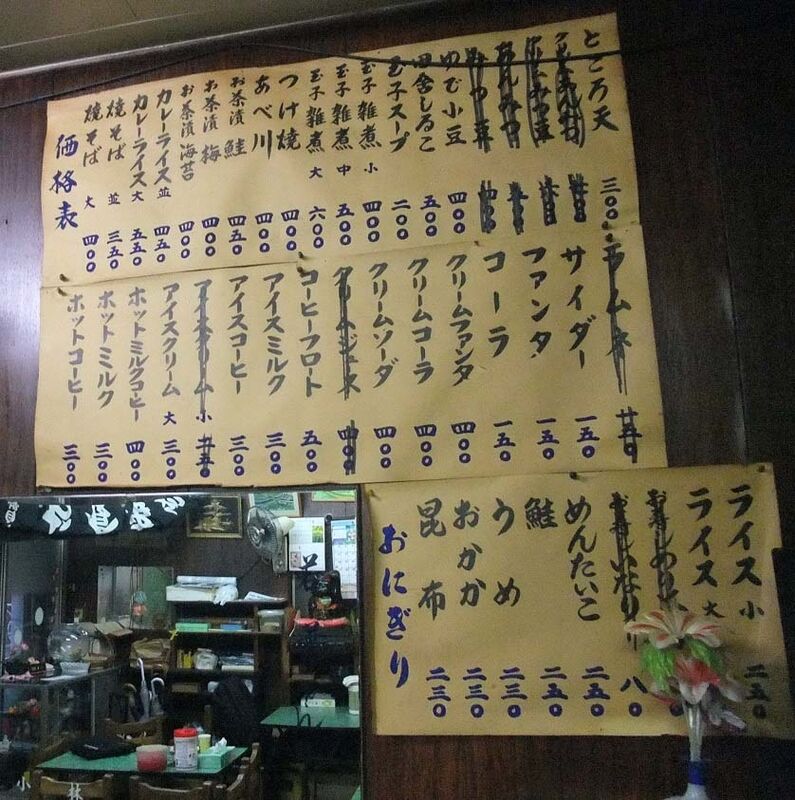 ところ天 三〇〇
ゆで小豆 四〇〇
田舎しるこ 五〇〇
玉子スープ 二〇〇
玉子雑煮 小 四〇〇
玉子雑煮 中 五〇〇
玉子雑煮 大 六〇〇
つけ焼 四〇〇
あべ川 四〇〇
お茶漬 鮭 四五〇
お茶漬 梅 四〇〇
お茶漬 海苔 四〇〇
カレーライス 並 四五〇
カレーライス 大 五五〇
焼そば 並 三五〇
焼そば 大 四〇〇
価格表
ラムネ
サイダー 一五〇
ファンタ 一五〇
コーラ 一五〇
クリームファンタ 四〇〇
クリームコーラ 四〇〇
クリームソーダ 四〇〇
コーヒーフロート 五〇〇
アイスミルク 三〇〇
アイスコーヒー 三〇〇
アイスクリーム 小
アイスクリーム 大 三〇〇
ホットミルクコーヒー 四〇〇
ホットミルク 三〇〇
ホットコーヒー 三〇〇
ライス 小 二五〇
ライス 大
めんたいこ 二五〇
鮭 二五〇
うめ 二三〇
おかか 二三〇
昆布 二三〇
おにぎり
小林